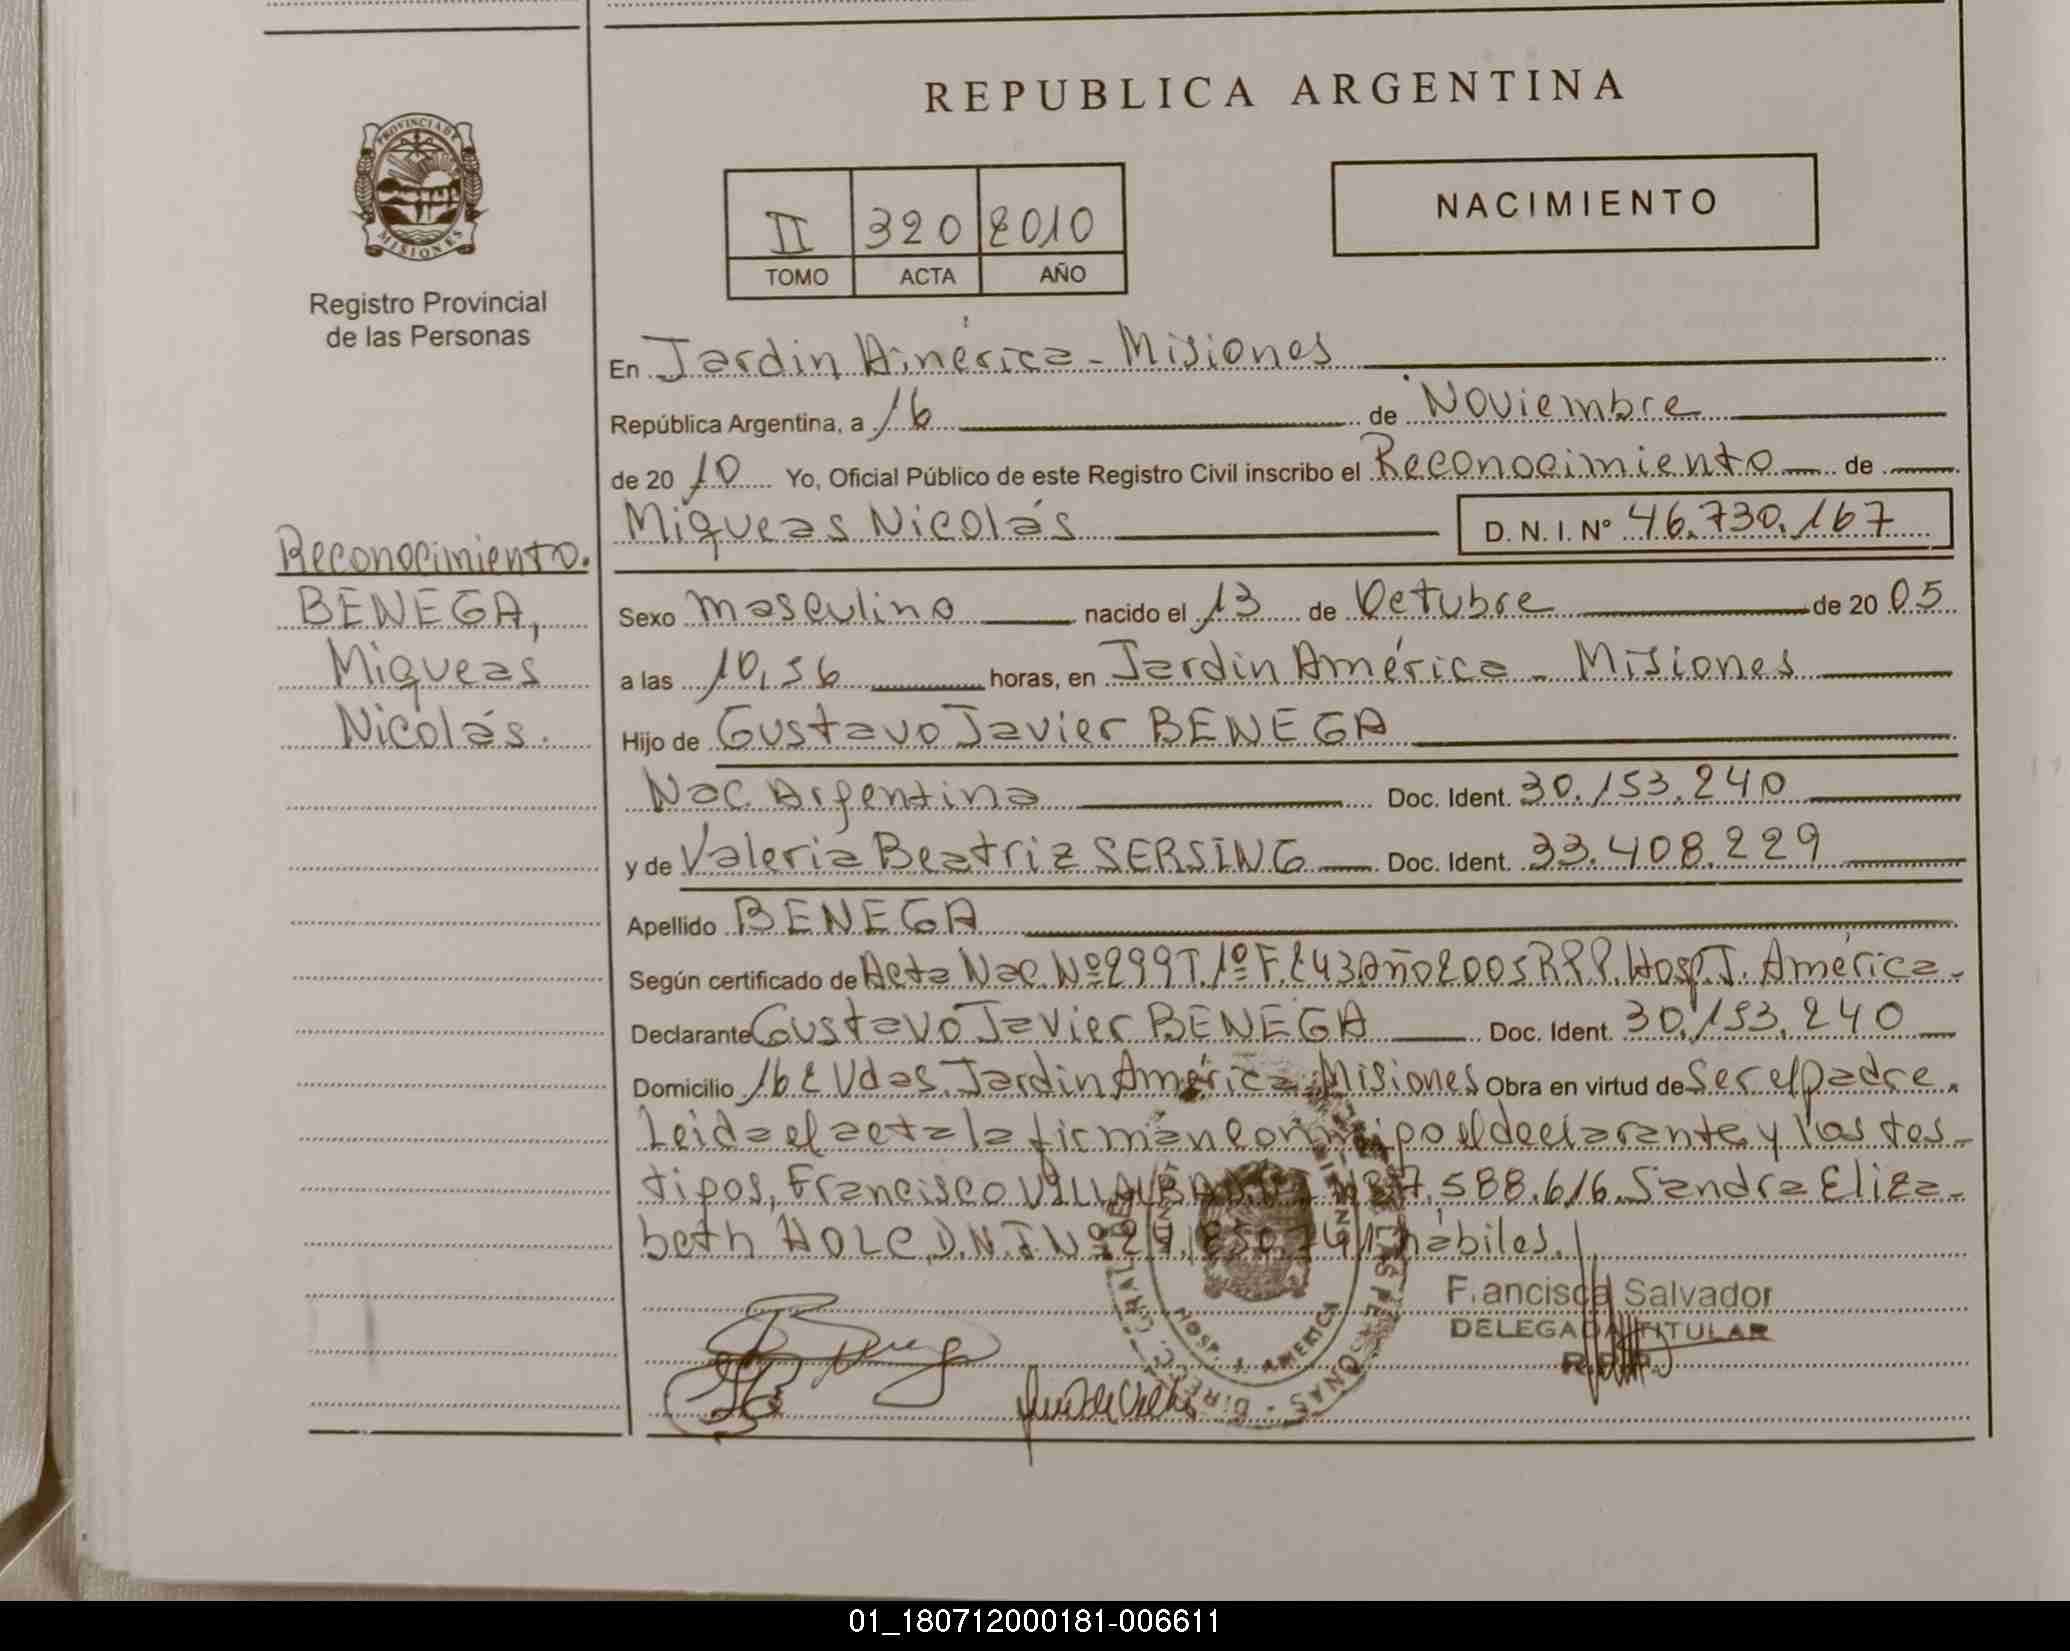 REPUBLICA ARGENTINA
PROVINCIA DE
MISIONES
Registro Provincial
de las Personas
NACIMIENTO
II 320 2010
TOMO ACTA AÑO
En Jardin América - Misiones
República Argentina, a 16 de Noviembre
de 20 10 Yo, Oficial Público de este Registro Civil inscribo el Reconocimiento de
Miqueas Nicolás D. N. I. Nº 46.730.167
Reconocimiento.
BENEGA,
Miqueas
Nicolás.
Sexo masculino nacido el 13 de Octubre de 20 05
a las 10,36 horas, en Jardin América - Misiones
Hijo de Gustavo Javier BENEGA
Nac. Argentina Doc. Ident. 30.153.240
y de Valeria Beatriz SERSING Doc. Ident. 33.408.229
Apellido BENEGA
Según certificado de Acta Nac. Nº 299 T. 1º F. 243 Año 2005 R.P.P. Hosp. J. América -
Declarante Gustavo Javier BENEGA Doc. Ident. 30.153.240
Domicilio 162 Vdas. Jardin América Misiones Obra en virtud de Ser el padre.
Leida el acta la firman conmigo el declarante y los tes-
tigos, Francisco 588.616. Sandra Eliza-
beth HOLC, D.N.I Nº hábiles.
F.ancisco Salvador
DELEGADA TITULAR
R.P.P.
HOSP. J. AMERICA
01_180712000181-006611